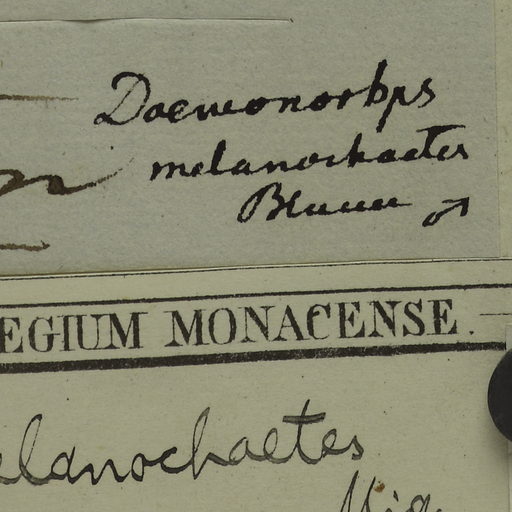 Daemonorhps
melanochaetes
Blume ♂
EGIUM MONACENSE.
elanochaetes
Miq.